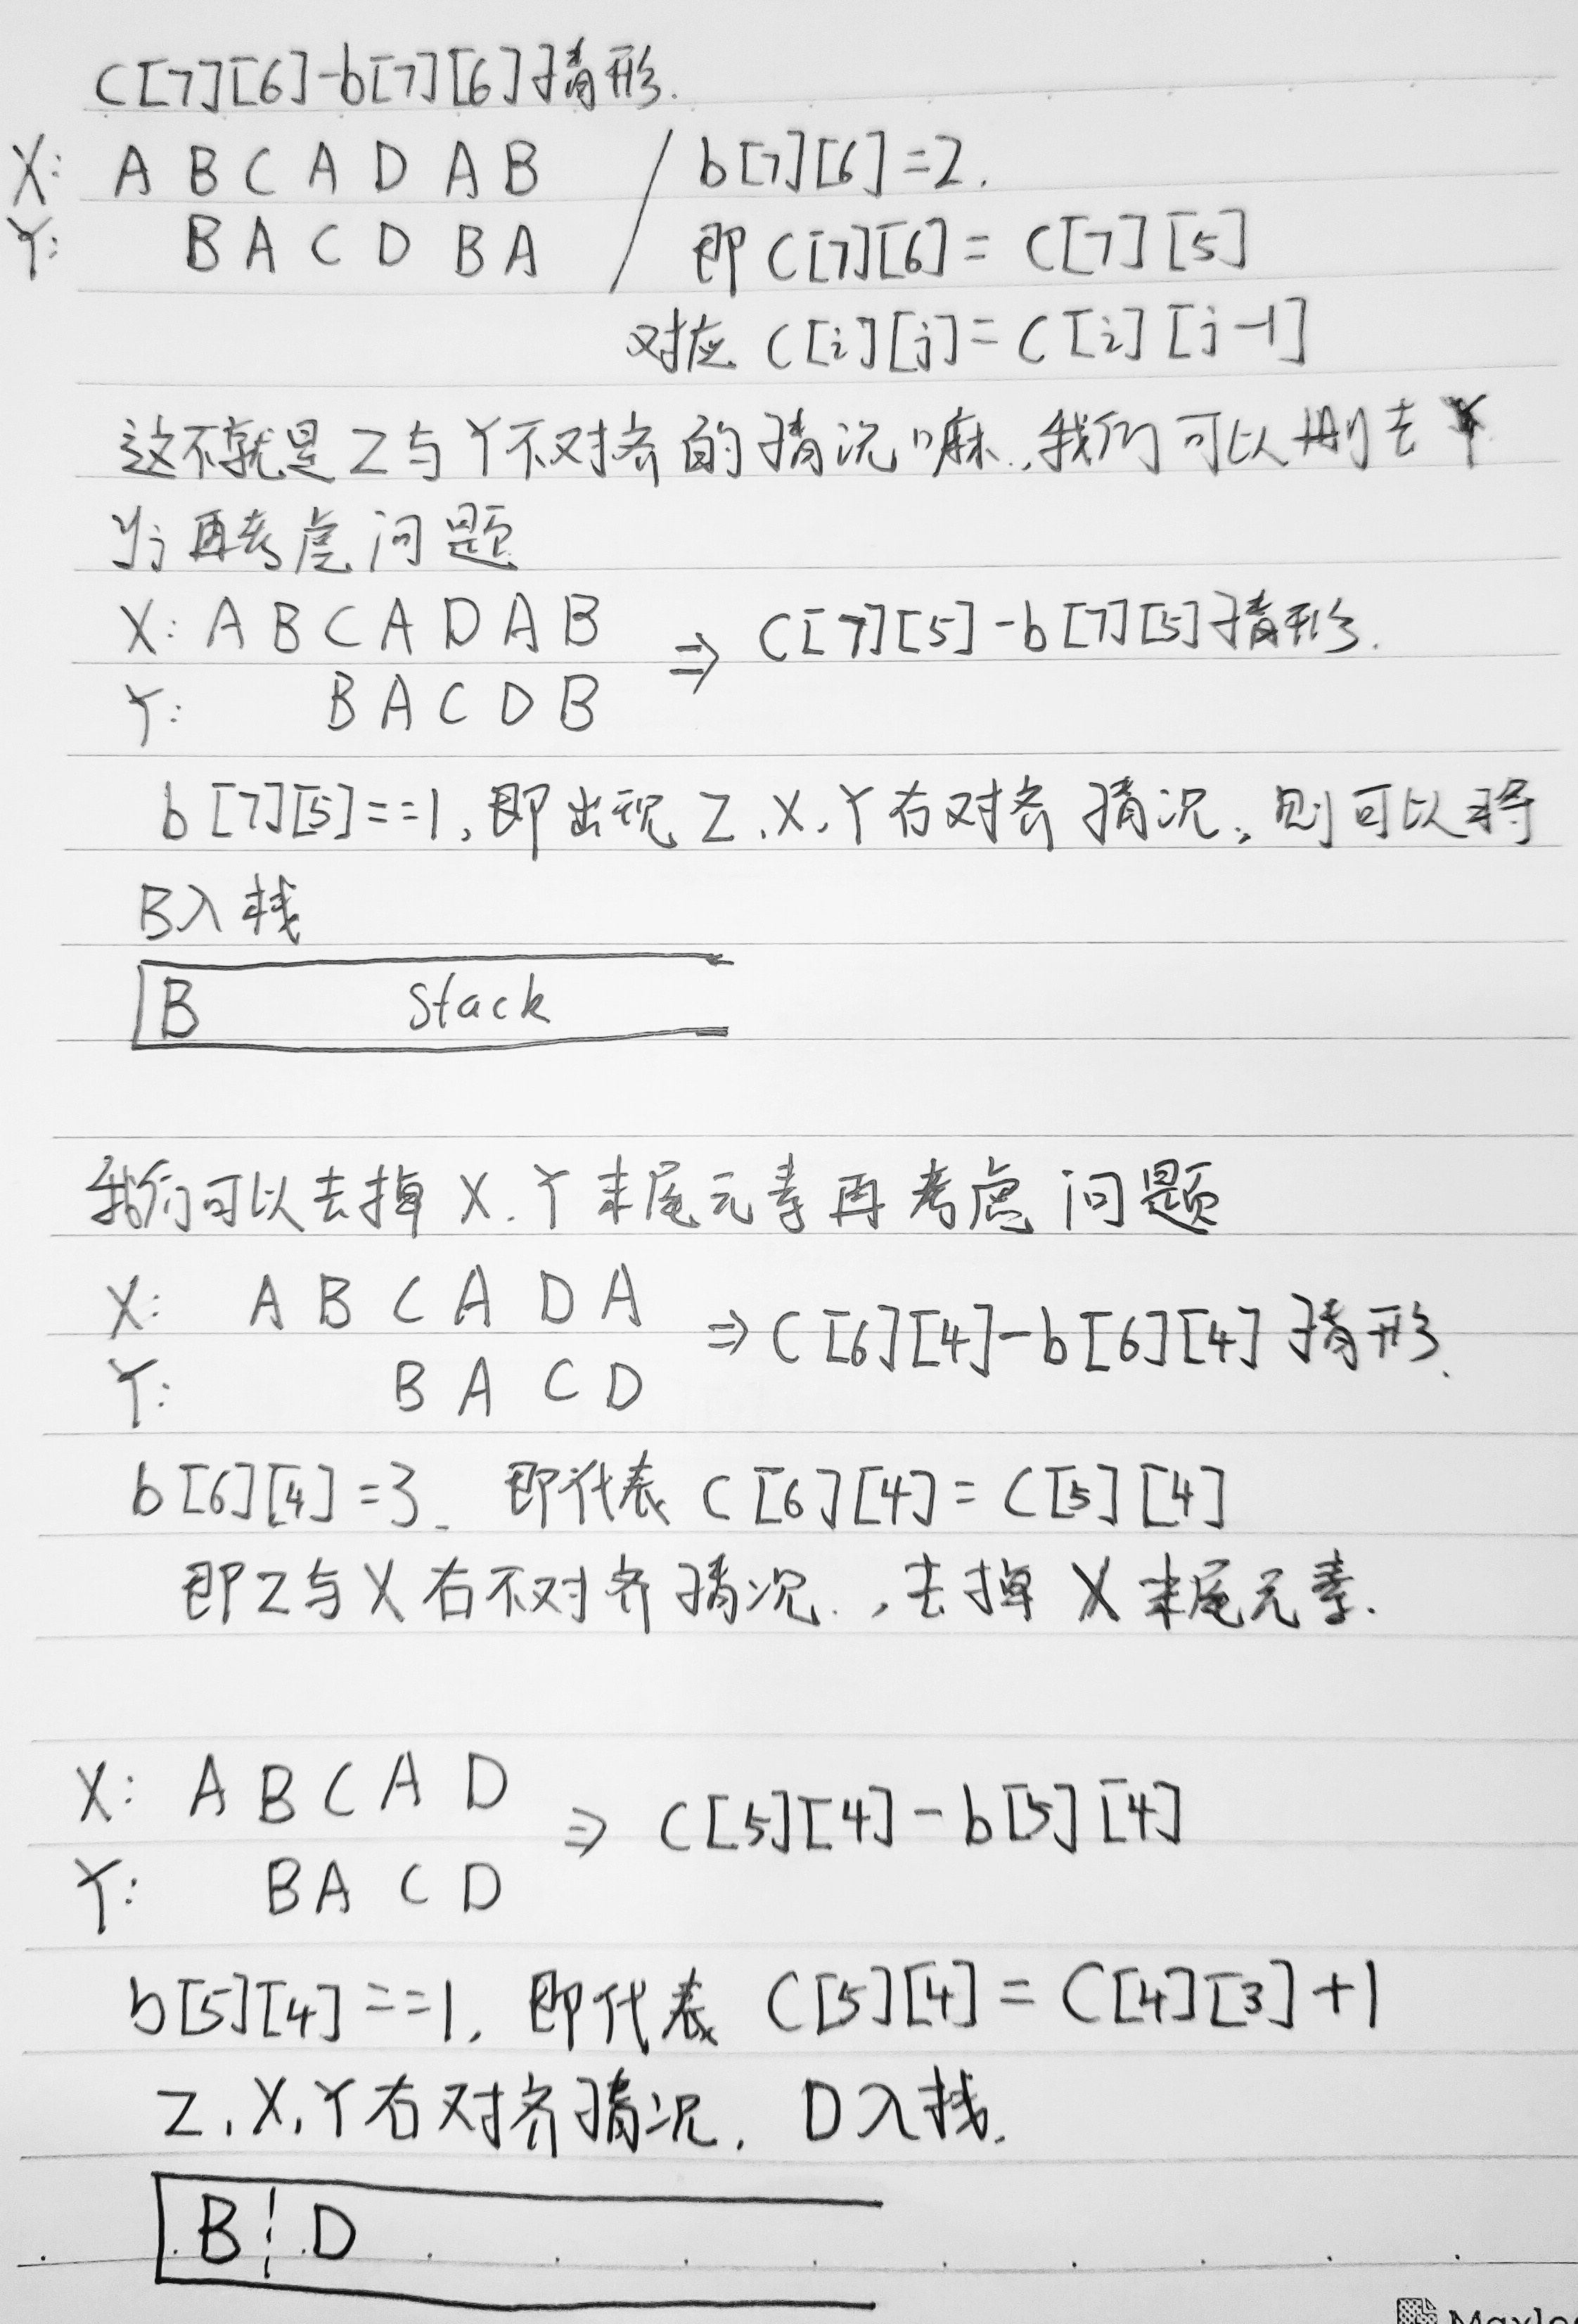 C[7][6]-b[7][6]情形.
X: A B C A D A B / b[7][6]=2.
Y: B A C D B A 即 C[7][6]= C[7][5]
对应 C[i][j]= C[i][j-1]
这不就是Z与Y不对齐的情况嘛.,我们可以删去
yj 再考虑问题
X: A B C A D A B ⇒ C[7][5]-b[7][5]情形.
Y: B A C D B
b[7][5]==1,即出现 Z.X.Y右对齐情况,则可以将
B入栈
B Stack
我们可以去掉 X.Y末尾元素再考虑问题
X: A B C A D A ⇒ C[6][4]-b[6][4]情形.
Y: B A C D
b[6][4]=3. 即代表 C[6][4]= C[5][4]
即Z与X右不对齐情况.,去掉X末尾元素.
X: A B C A D ⇒ C[5][4]-b[5][4]
Y: B A C D
b[5][4]==1, 即代表 C[5][4]= C[4][3]+1
Z.X.Y右对齐情况. D入栈.
B D